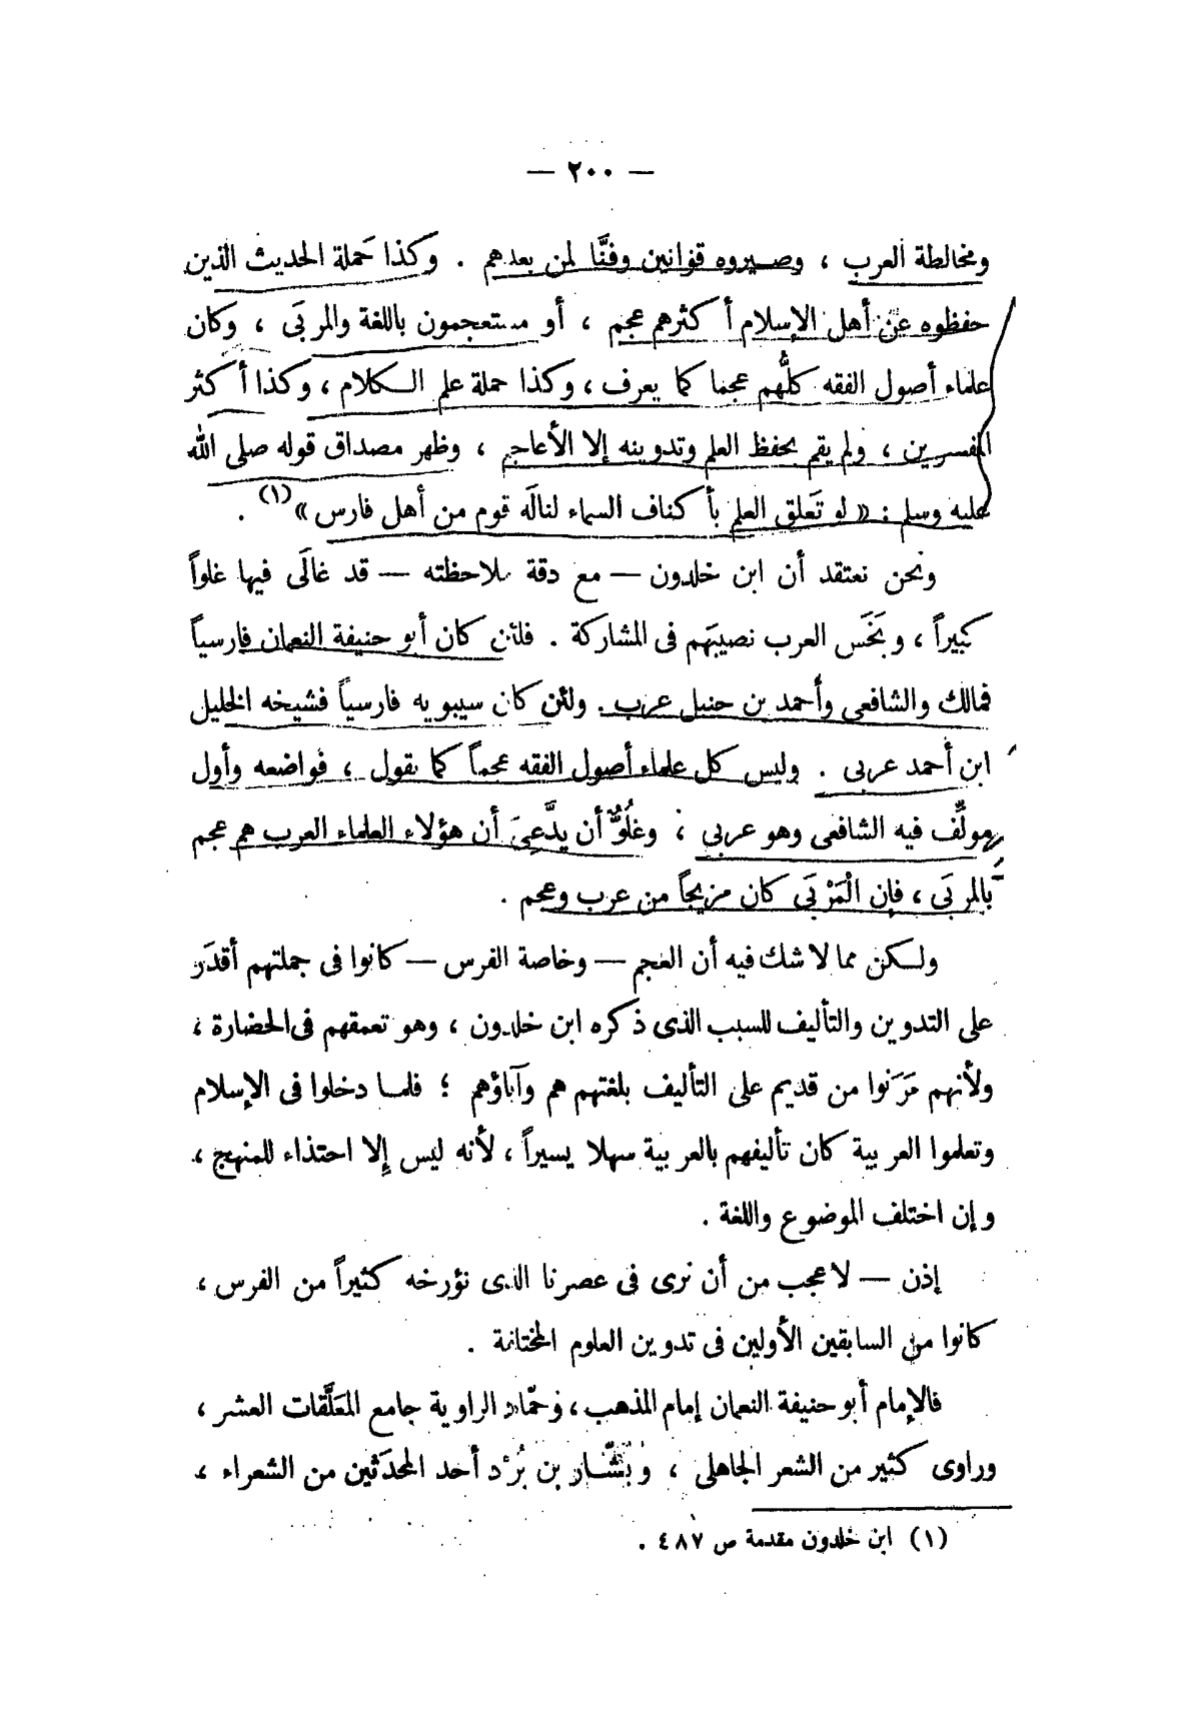 — ٢٠٠ —
ومخالطة العرب ، وصيروه قوانين وفنًّا لمن بعدهم . وكذا حَملة الحديث الذين
حفظوه عن أهل الإسلام أكثرهم عجم ، أو مستعجمون باللغة والمربَى ، وكان
علماء أصول الفقه كلُّهم عجما كما يعرف ، وكذا حملة علم الكلام ، وكذا أكثر
المفسرين ، ولم يقم بحفظ العلم وتدوينه إلا الأعاجم ، وظهر مصداق قوله صلى الله
عليه وسلم : « لو تَعلق العلم بأكناف السماء لنالَه قوم من أهل فارس »(١) .
ونحن نعتقد أن ابن خلدون — مع دقة ملاحظته — قد غالَى فيها غلواً
كبيراً ، وبَخَس العرب نصيبَهم فى المشاركة . فلئن كان أبو حنيفة النعمان فارسياً
فمالك والشافعى وأحمد بن حنبل عرب . ولئن كان سيبويه فارسياً فشيخه الخليل
ابن أحمد عربى . وليس كل علماء أصول الفقه عجماً كما يقول ، فواضعه وأول
مولِّف فيه الشافعى وهو عربى ؛ وغلُوٌّ أن يدَّعِىَ أن هؤلاء العلماء العرب هم عجم
بالمربَى ، فإن الْمَرْبَى كان مزيجاً من عرب وعجم .
ولكن مما لا شك فيه أن العجم — وخاصة الفرس — كانوا فى جملتهم أقدَر
على التدوين والتأليف للسبب الذى ذكره ابن خلدون ، وهو تعمقهم فى الحضارة ،
ولأنهم مَرَنوا من قديم على التأليف بلغتهم هم وآباؤهم ؛ فلما دخلوا فى الإسلام
وتعلموا العربية كان تأليفهم بالعربية سهلا يسيراً ، لأنه ليس إلا احتذاء للمنهج ،
وإن اختلف الموضوع واللغة .
إذن — لا عجب من أن نرى فى عصرنا الذى نؤرخه كثيراً من الفرس ،
كانوا من السابقين الأولين فى تدوين العلوم المختلفة .
فالإمام أبو حنيفة النعمان إمام المذهب ، وحمّاد الراوية جامع المعَلَّقات العشر ،
وراوى كثير من الشعر الجاهلى ، وبَشَّار بن بُرْد أحد المحدَثين من الشعراء ،
(١) ابن خلدون مقدمة ص ٤٨٧ .